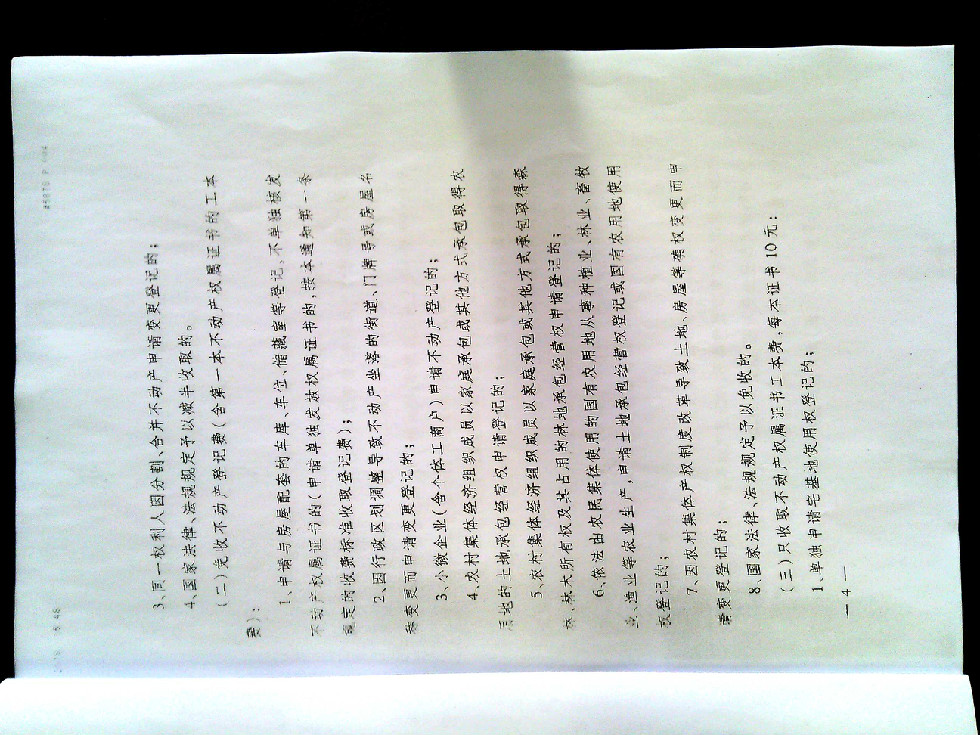 3、同一权利人因分割、合并不动产申请变更登记的；
4、国家法律、法规规定予以减半收取的。
（二）免收不动产登记费（含第一本不动产权属证书的工本
费）：
1、申请与房屋配套的车库、车位、储藏室等登记，不单独核发
不动产权属证书的（申请单独发放权属证书的，按本通知第一条
规定的收费标准收取登记费）；
2、因行政区划调整导致不动产坐落的街道、门牌号或房屋名
称变更而申请变更登记的；
3、小微企业（含个体工商户）申请不动产登记的；
4、农村集体经济组织成员以家庭承包或其他方式承包取得农
用地的土地承包经营权申请登记的；
5、农村集体经济组织成员以家庭承包或其他方式承包取得森
林、林木所有权及其占用的林地承包经营权申请登记的；
6、依法由农民集体使用的国有农用地从事种植业、林业、畜牧
业、渔业等农业生产，申请土地承包经营权登记或国有农用地使用
权登记的；
7、因农村集体产权制度改革导致土地、房屋等确权变更而申
请变更登记的；
8、国家法律、法规规定予以免收的。
（三）只收取不动产权属证书工本费，每本证书10元：
1、单独申请宅基地使用权登记的；
— 4 —